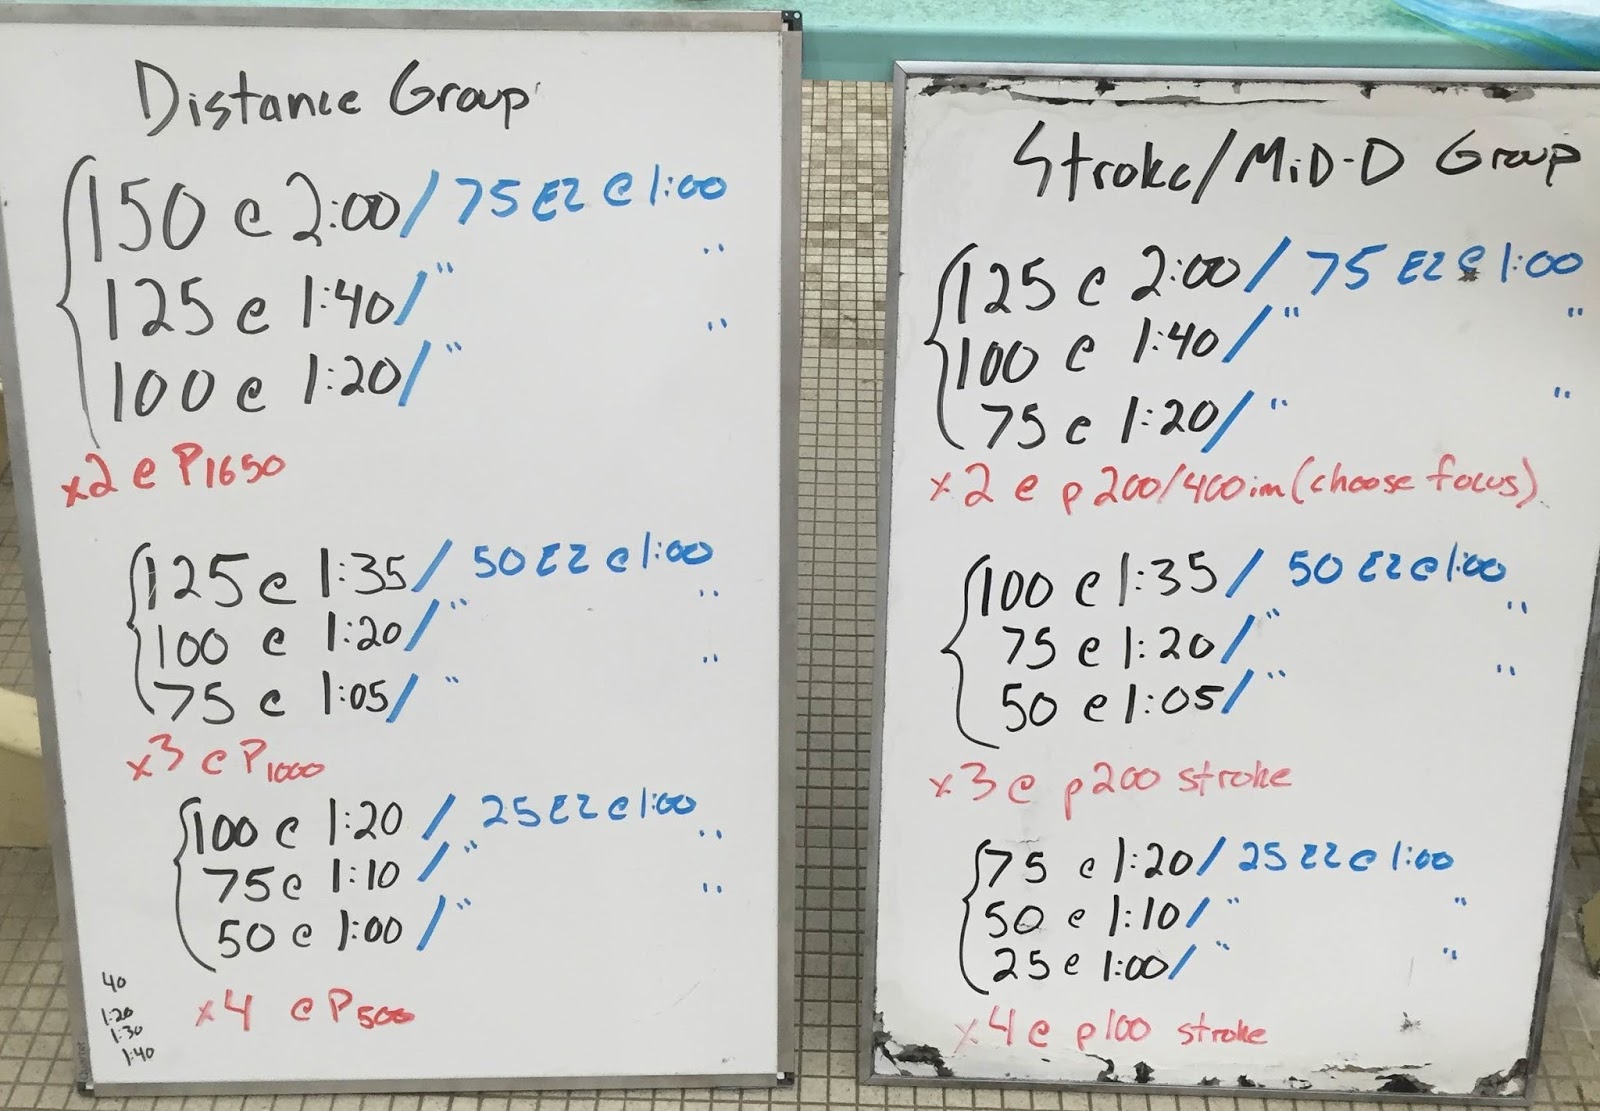 Distance Group
150 @ 2:00 / 75 EZ @ 1:00
125 @ 1:40 / " "
100 @ 1:20 / " "
x2 @ P1650
125 @ 1:35 / 50 EZ @ 1:00
100 @ 1:20 / " "
75 @ 1:05 / " "
x3 @ P1000
100 @ 1:20 / 25 EZ @ 1:00
75 @ 1:10 / " "
50 @ 1:00 / " "
x4 @ P500
40
1:20
1:30
1:40
Stroke/MiD-D Group
125 @ 2:00 / 75 EZ @ 1:00
100 @ 1:40 / " "
75 @ 1:20 / " "
x2 @ p200/400im (choose focus)
100 @ 1:35 / 50 EZ @ 1:00
75 @ 1:20 / " "
50 @ 1:05 / " "
x3 @ p200 stroke
75 @ 1:20 / 25 EZ @ 1:00
50 @ 1:10 / " "
25 @ 1:00 / " "
x4 @ p100 stroke